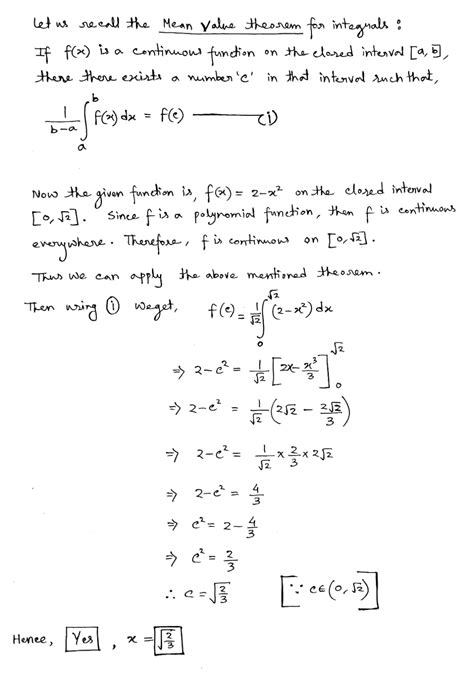 Let us recall the Mean Value theorem for integrals :
If f(x) is a continuous function on the closed interval [a, b],
there there exists a number 'c' in that interval such that,
1/(b-a) ∫_a^b f(x) dx = f(c) ——— (i)
Now the given function is, f(x) = 2-x² on the closed interval
[0, √2]. Since f is a polynomial function, then f is continuous
everywhere. Therefore, f is continuous on [0, √2].
Thus we can apply the above mentioned theorem.
Then using ① We get, f(c) = 1/√2 ∫_0^√2 (2-x²) dx
⇒ 2-c² = 1/√2 [2x - x³/3]_0^√2
⇒ 2-c² = 1/√2 (2√2 - 2√2/3)
⇒ 2-c² = 1/√2 × 2/3 × 2√2
⇒ 2-c² = 4/3
⇒ c² = 2 - 4/3
⇒ c² = 2/3
∴ c = √(2/3) [∵ c∈(0, √2)]
Hence, Yes , x = √(2/3)